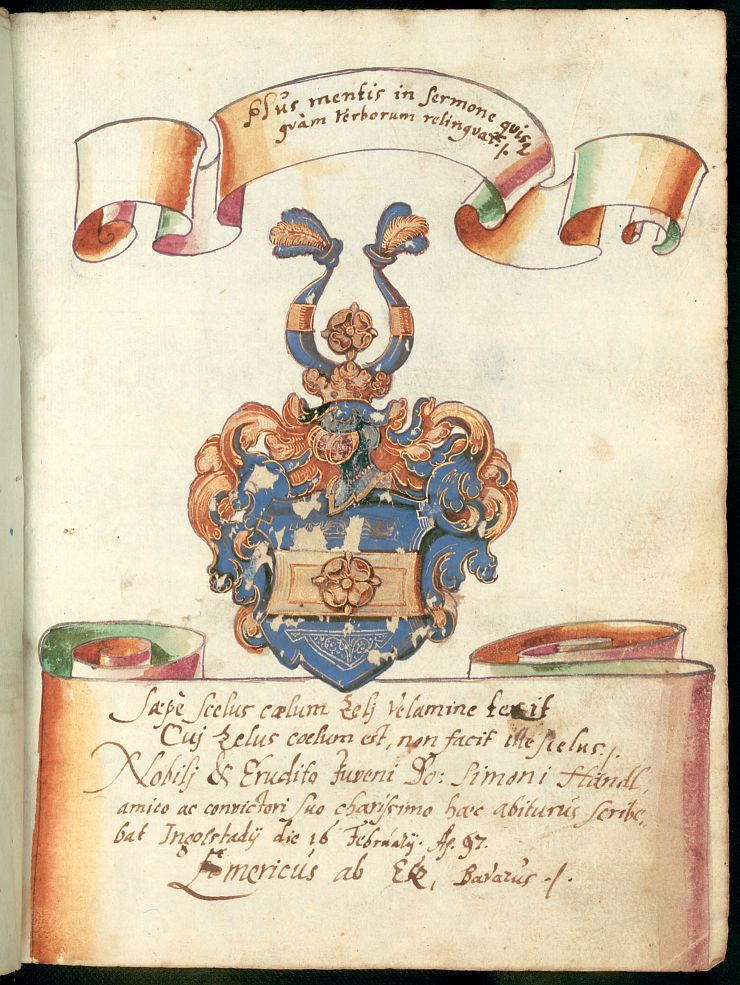 Plus mentis in sermone quisq
quàm verborum relinquat ./.
Sæpè scelus cœlum Zelj velamine texit
Cuj Zelus coelum est, non facit ille scelus ./.
Nobilj & Erudito Juveni Do: Simoni Händl,
amico ac convictori suo charissimo hæc abiturus scribe,
bat Ingolstadij die 16 February. Aᵒ. 97.
Emericus ab , Bavarus ./.